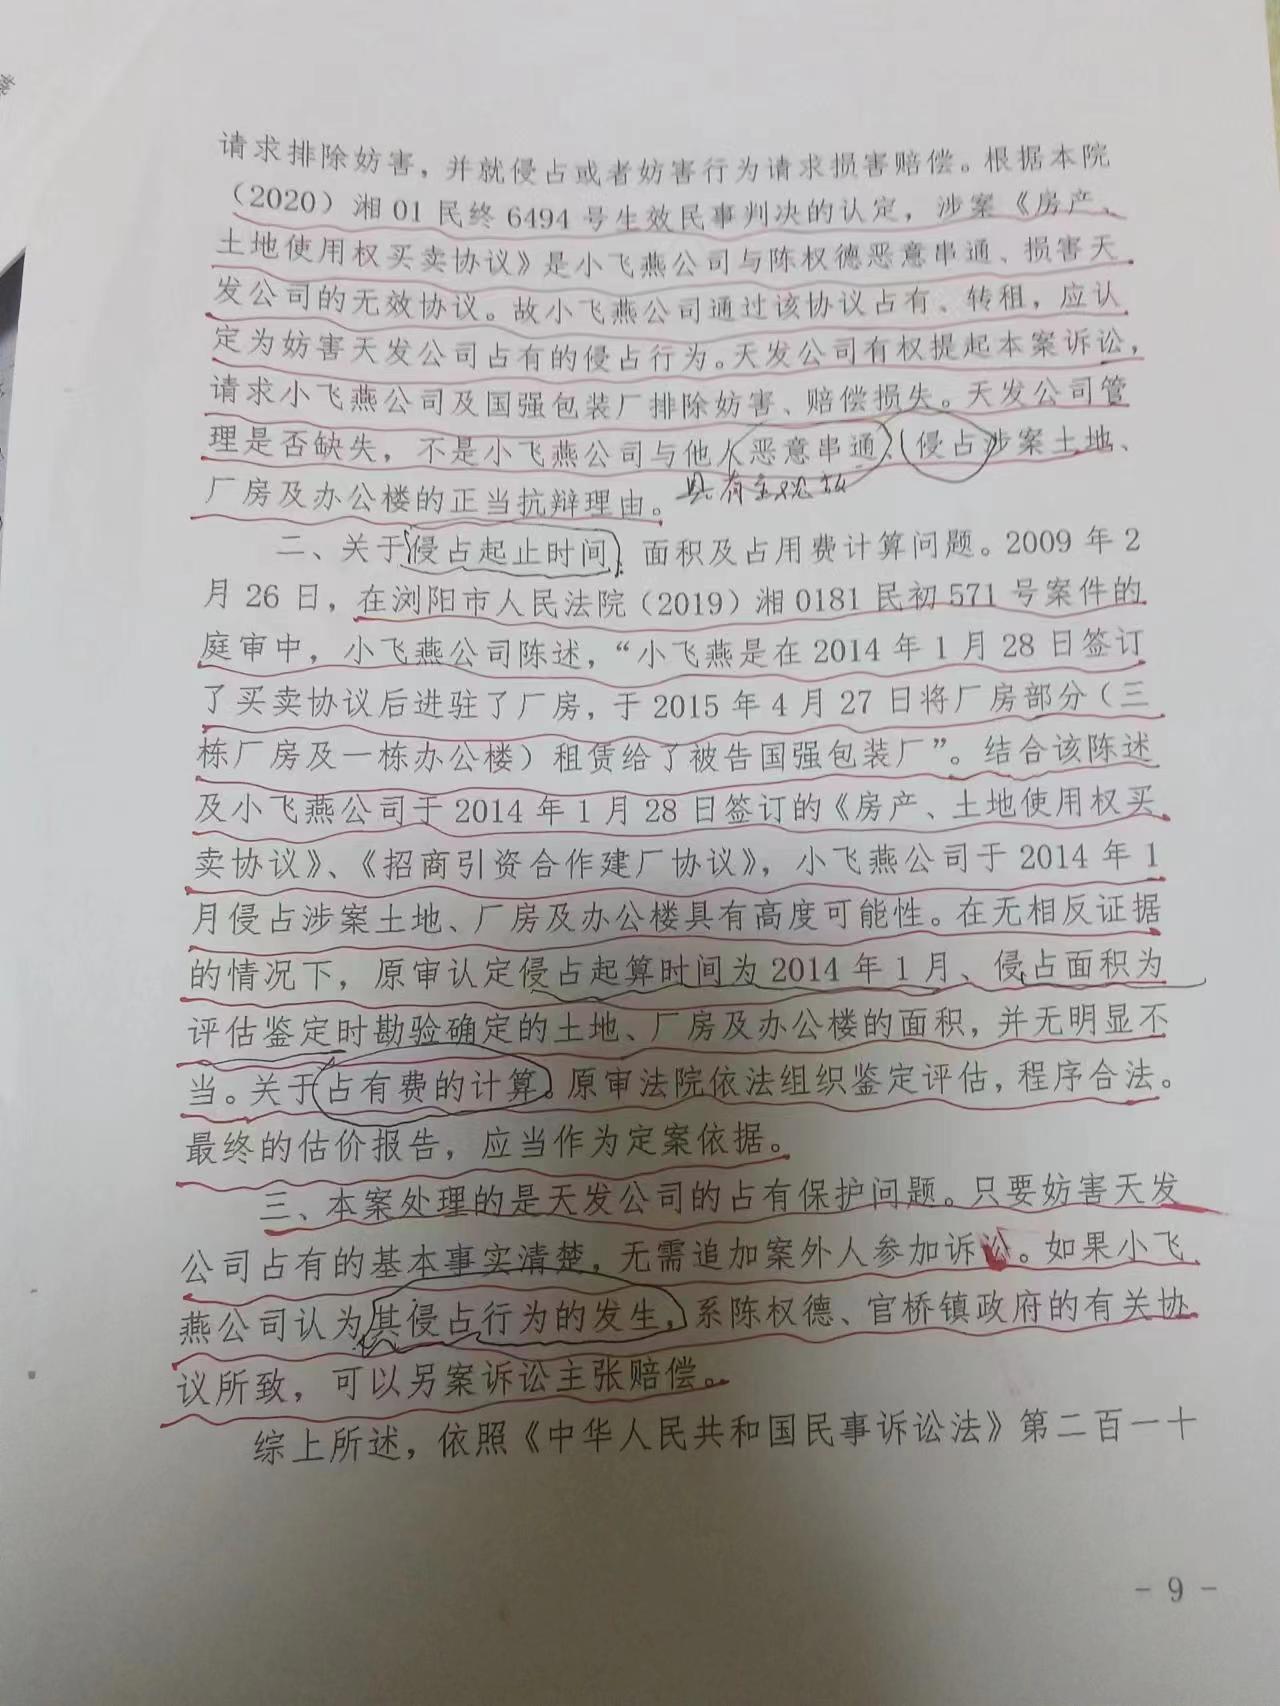 请求排除妨害，并就侵占或者妨害行为请求损害赔偿。根据本院
（2020）湘 01 民终 6494 号生效民事判决的认定，涉案《房产、
土地使用权买卖协议》是小飞燕公司与陈权德恶意串通、损害天
发公司的无效协议。故小飞燕公司通过该协议占有、转租，应认
定为妨害天发公司占有的侵占行为。天发公司有权提起本案诉讼，
请求小飞燕公司及国强包装厂排除妨害、赔偿损失。天发公司管
理是否缺失，不是小飞燕公司与他人恶意串通、侵占涉案土地、
厂房及办公楼的正当抗辩理由。
具有主观故
二、关于侵占起止时间、面积及占用费计算问题。2009 年 2
月 26 日，在浏阳市人民法院（2019）湘 0181 民初 571 号案件的
庭审中，小飞燕公司陈述，“小飞燕是在 2014 年 1 月 28 日签订
了买卖协议后进驻了厂房，于 2015 年 4 月 27 日将厂房部分（三
栋厂房及一栋办公楼）租赁给了被告国强包装厂”。结合该陈述
及小飞燕公司于 2014 年 1 月 28 日签订的《房产、土地使用权买
卖协议》、《招商引资合作建厂协议》，小飞燕公司于 2014 年 1
月侵占涉案土地、厂房及办公楼具有高度可能性。在无相反证据
的情况下，原审认定侵占起算时间为 2014 年 1 月、侵占面积为
评估鉴定时勘验确定的土地、厂房及办公楼的面积，并无明显不
当。关于占有费的计算。原审法院依法组织鉴定评估，程序合法。
最终的估价报告，应当作为定案依据。
三、本案处理的是天发公司的占有保护问题。只要妨害天发
公司占有的基本事实清楚，无需追加案外人参加诉讼。如果小飞
燕公司认为其侵占行为的发生，系陈权德、官桥镇政府的有关协
议所致，可以另案诉讼主张赔偿。
综上所述，依照《中华人民共和国民事诉讼法》第二百一十
- 9 -